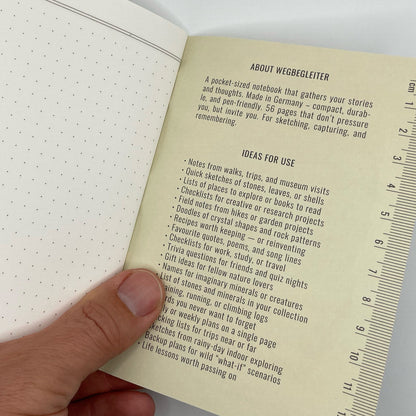 ABOUT WEGBEGLEITER
A pocket-sized notebook that gathers your stories
and thoughts. Made in Germany – compact, durab-
le, and pen-friendly. 56 pages that don't pressure
you, but invite you. For sketching, capturing, and
remembering.
IDEAS FOR USE
• Notes from walks, trips, and museum visits
• Quick sketches of stones, leaves, or shells
• Lists of places to explore or books to read
• Checklists for creative or research projects
• Field notes from hikes or garden projects
• Doodles of crystal shapes and rock patterns
• Recipes worth keeping — or reinventing
• Favourite quotes, poems, and song lines
• Checklists for work, study, or travel
• Trivia questions for friends and quiz nights
• Gift ideas for fellow nature lovers
• Names for imaginary minerals or creatures
List of stones and minerals in your collection
running, or climbing logs
you never want to forget
or weekly plans on a single page
lists for trips near or far
Sketches from rainy-day indoor exploring
• Backup plans for wild "what-if" scenarios
• Life lessons worth passing on
cm
1
2
3
4
5
6
7
8
9
10
11